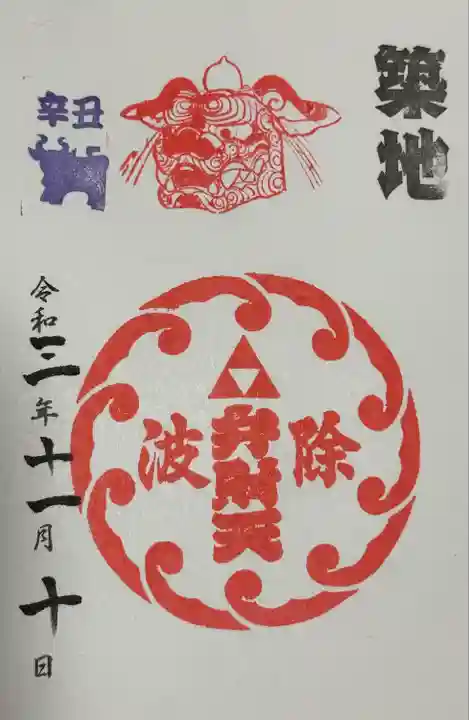 築地
辛丑
除
弁財天
波
令和三年十一月十日